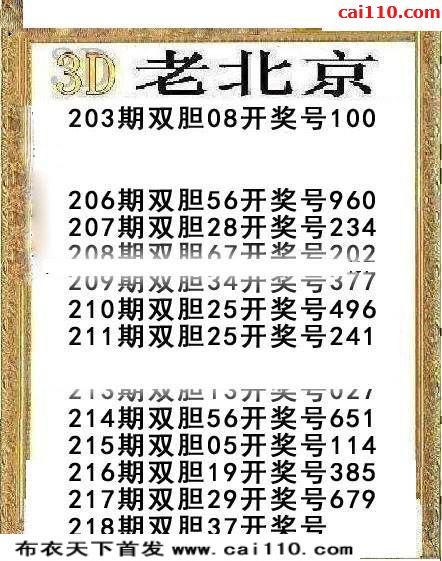 cai110.com
3D 老北京
203期双胆08开奖号100
206期双胆56开奖号960
207期双胆28开奖号234
208期双胆67开奖号202
209期双胆34开奖号377
210期双胆25开奖号496
211期双胆25开奖号241
213期双胆13开奖号027
214期双胆56开奖号651
215期双胆05开奖号114
216期双胆19开奖号385
217期双胆29开奖号679
218期双胆37开奖号
布衣天下首发 www.cai110.com